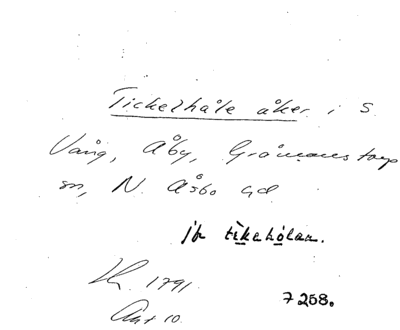 Tickelhåle åker i S.
Vång, Åby, Gråmanstorp
sn, N. Åsbo hd
jfr tikehòlan.
1791
Akt 10.
7258.